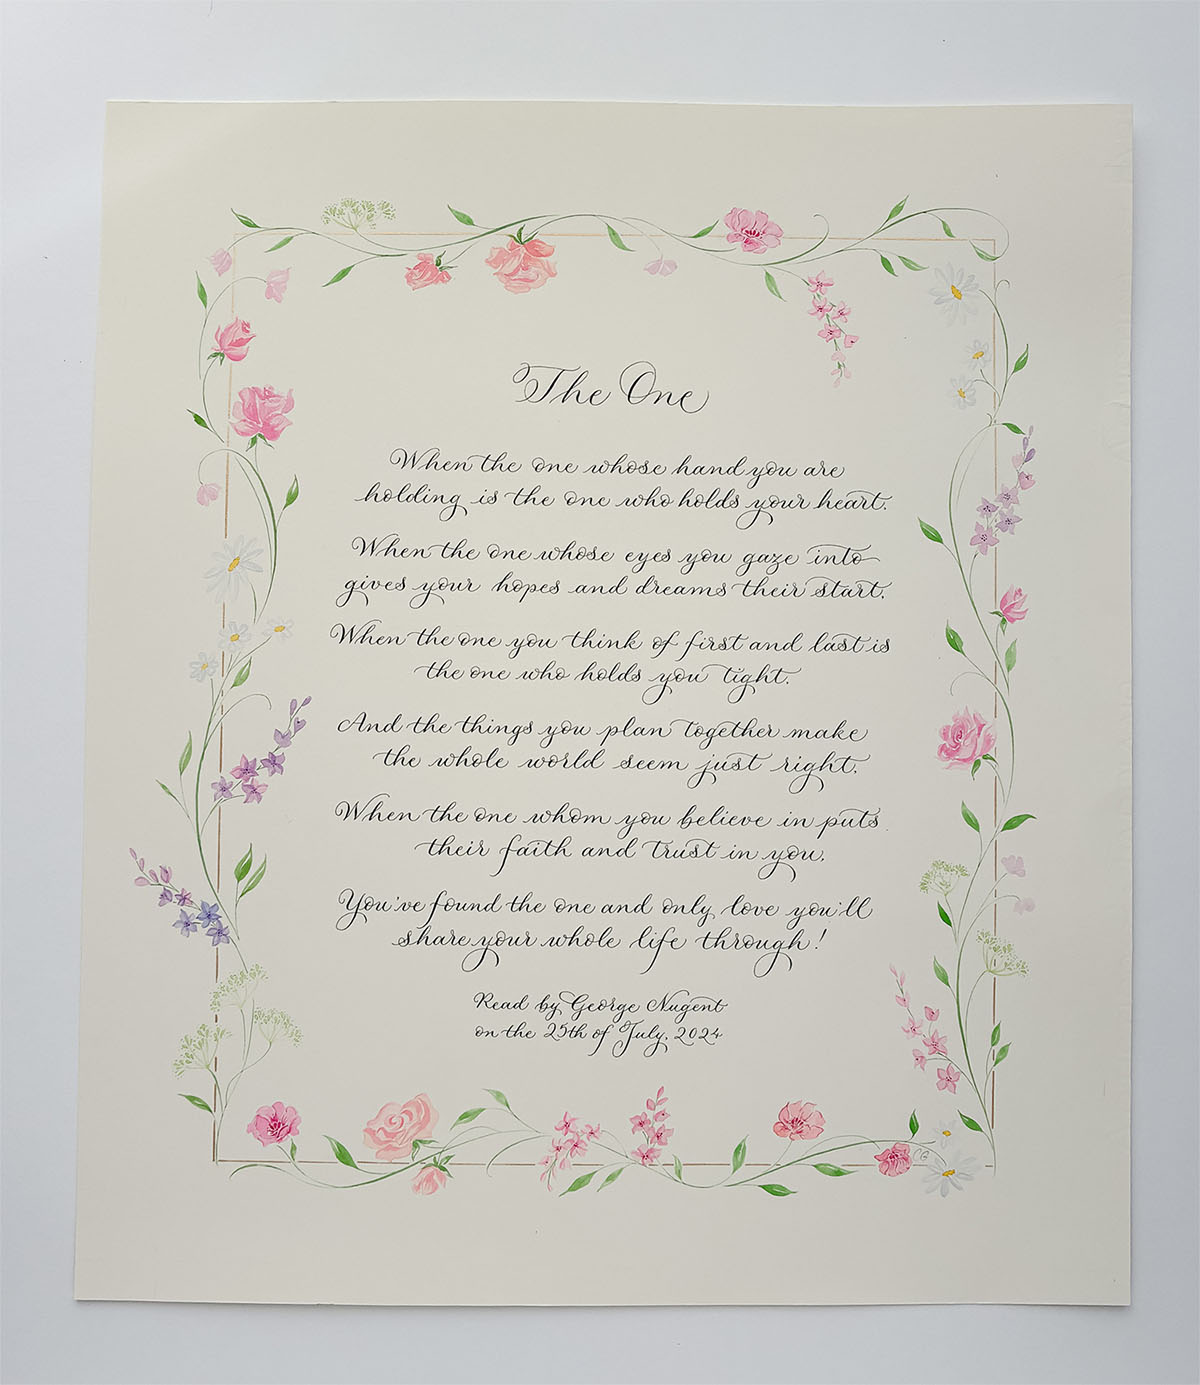 The One
When the one whose hand you are
holding is the one who holds your heart.
When the one whose eyes you gaze into
gives your hopes and dreams their start.
When the one you think of first and last is
the one who holds you tight.
And the things you plan together make
the whole world seem just right.
When the one whom you believe in puts
their faith and trust in you.
You've found the one and only love you'll
share your whole life through!
Read by George Nugent
on the 25th of July, 2024